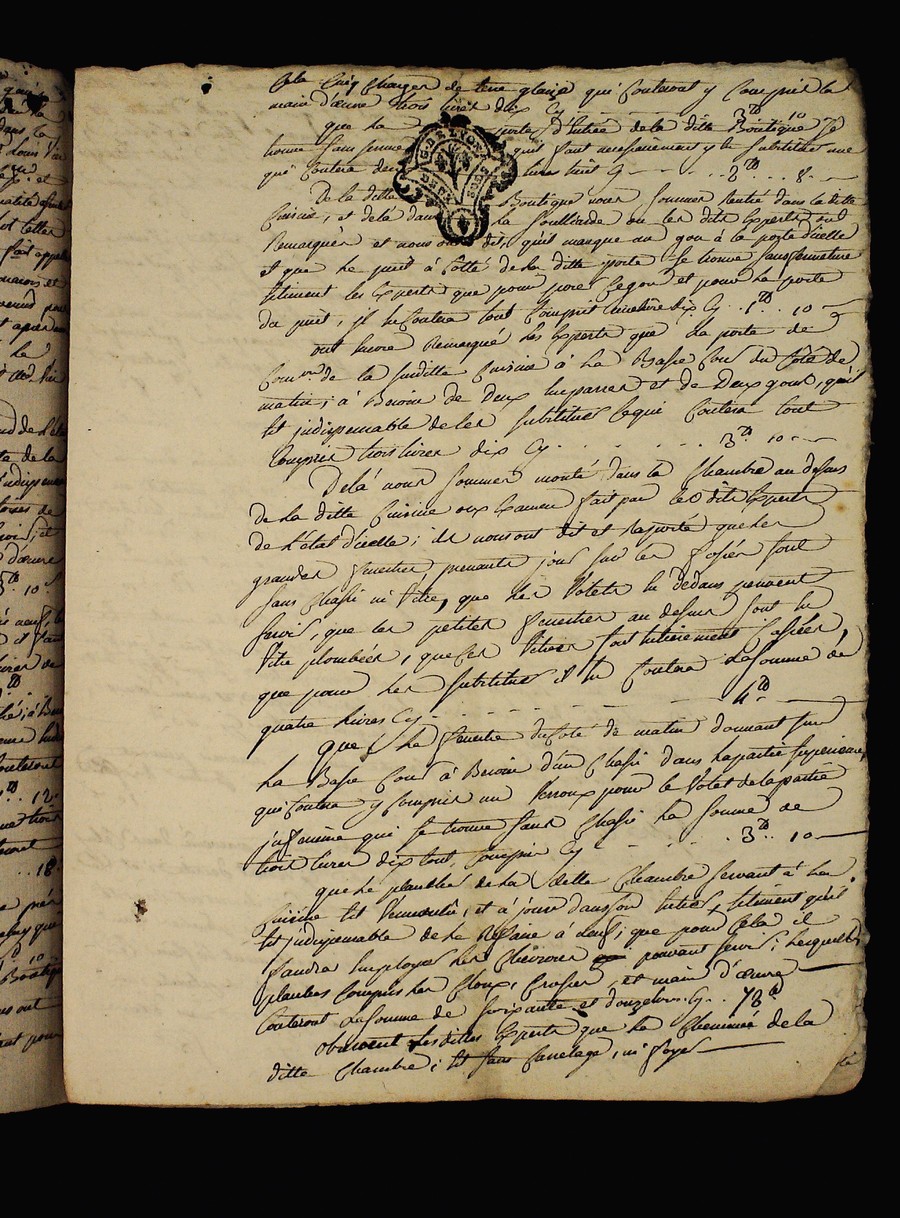 cinq charges de terre glaise qui Couteront y Compris la
main d'œuvre trois livres dix Cy 3ᵗᵗ 10
que la porte d'Entrée de la ditte Boutique se
trouve sans qu'il faut necessairement y en substituer une
qui Coutera deux livres huit Cy 2ᵗᵗ 8
De la ditte Boutique nous sommes Rentré dans la ditte
Cuisine, et delà dans la souilliarde ou les dits Experts ont
Remarqués et nous ont dit, qu'il manque un gon à la porte d'icelle
et que le puit à Cotté de la ditte porte se trouve sans fermeture
Estiment les Experts que pour poser ce gon et pour la porte
du puit, il en Coutera tout Compris une livre dix Cy 1ᵗᵗ 10
ont encore Remarqué les Experts que la porte de
Comᵒⁿ de la susditte Cuisine à la Basse Cour du Coté de
matin, à Besoin de deux Emparres et de Deux gons, qu'il
Est jndispensable de les substituer ce qui Coutera tout
Compris trois livres dix Cy 3ᵗᵗ 10
Delà nous sommes monté dans la Chambre au dessus
de la ditte Cuisine ou Examen fait par les dits Experts
de l'état d'icelle; ils nous ont dit et Raporté que les
grandes fenestres prenants jour sur les fossés sont
sans Chassi ni Vitre, que les Volets en dedans peuvent
servir, que les petites fenestres au dessus sont en
Vitre plombées, que ces Vitres sont Entierement Cassées,
que pour les substituer il en Coutera la somme de
quatre livres Cy 4ᵗᵗ
que la fenestre du Coté de matin donnant sur
La Basse Cour à Besoin d'un Chassi dans sa partie superieure,
qui Coutera y Compris un Verroux pour le Volet de la partie
jnferieure qui se trouve sans Chassi la somme de
trois livres dix tout Compris Cy 3ᵗᵗ 10
que le planché de la ditte Chambre servant à la
Cuisine Est Vermoulu, et à jour dans son Entier, tellement qu'il
Est jndispensable de le Refaire à neuf; que pour Cela il
faudra Employer les Chevrons pouvant servir; lesquels
planches Compris les Cloux, et main d'œuvre
Couteront la somme de soixante et douze livres Cy 72ᵗᵗ
observent lesdittes Experts que la Cheminée de la
ditte Chambre; Est sans Carrelage, ni foyer